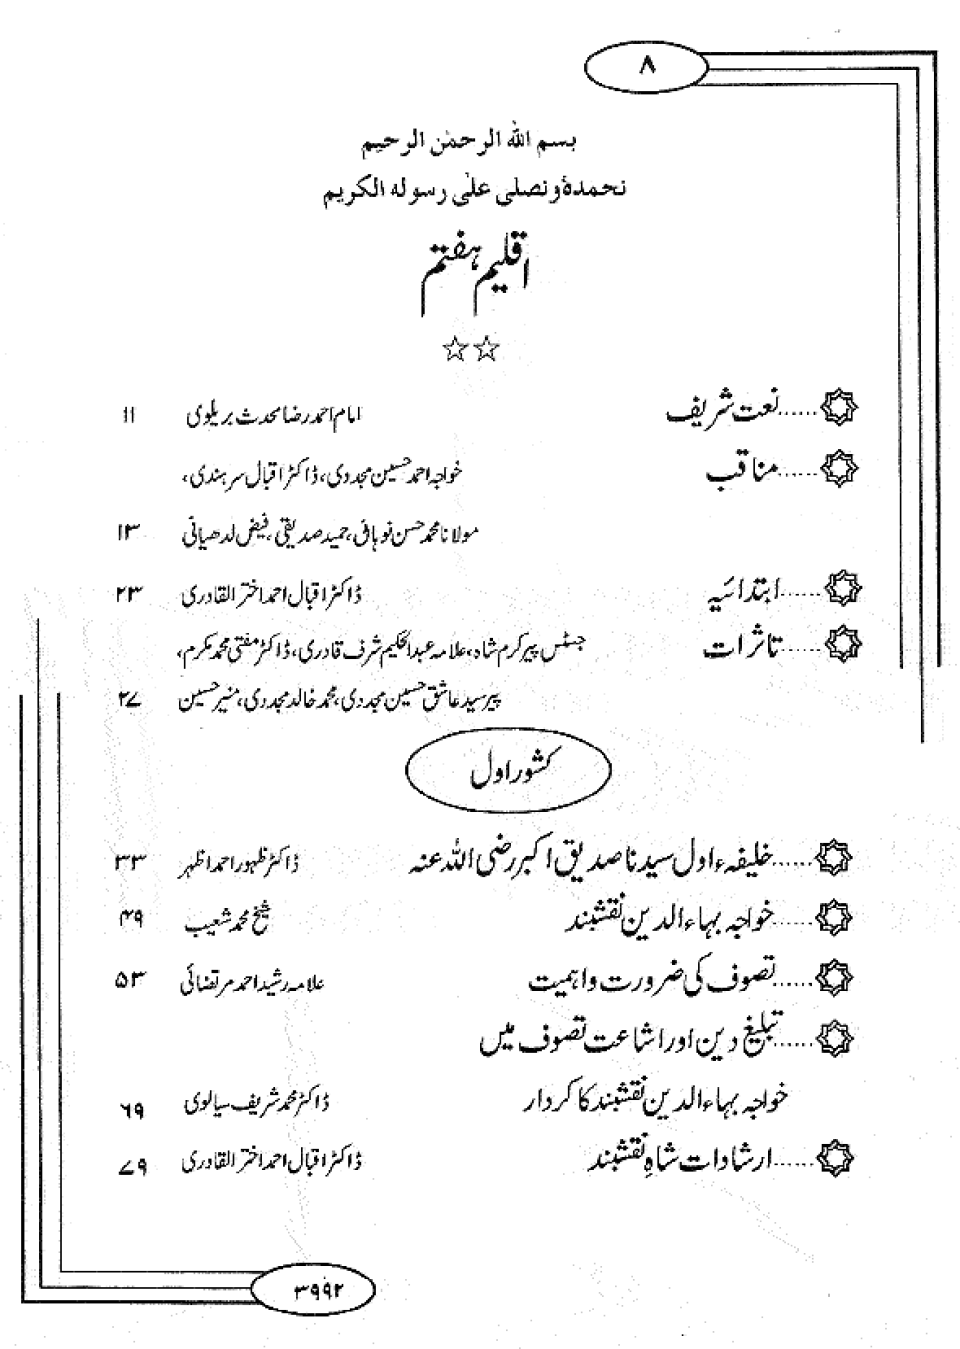 ۸
بسم اللہ الرحمٰن الرحیم
نحمدہٗ ونصلی علٰی رسولہ الکریم
اقلیم ہفتم
☆☆
......نعت شریف امام احمد رضا محدث بریلوی ۱۱
......مناقب خواجہ احمد حسین مجددی، ڈاکٹر اقبال سرہندی،
مولانا محمد حسن نوہافی، حمید صدیقی، فیض لدھیانی ۱۳
......ابتدائیہ ڈاکٹر اقبال احمد اختر القادری ۲۳
......تاثرات جسٹس پیر کرم شاہ، علامہ عبدالحکیم شرف قادری، ڈاکٹر مفتی محمد مکرم،
پیر سید عاشق حسین مجددی، محمد خالد مجددی، منیر حسین ۲۷
کشور اول
......خلیفہء اول سیدنا صدیق اکبر رضی اللہ عنہ ڈاکٹر ظہور احمد اظہر ۳۳
......خواجہ بہاء الدین نقشبند شیخ محمد شعیب ۴۹
......تصوف کی ضرورت و اہمیت علامہ رشید احمد مرتضائی ۵۳
......تبلیغ دین اور اشاعت تصوف میں
خواجہ بہاء الدین نقشبند کا کردار ڈاکٹر محمد شریف سیالوی ۶۹
......ارشادات شاہِ نقشبند ڈاکٹر اقبال احمد اختر القادری ۷۹
۳۹۹۲